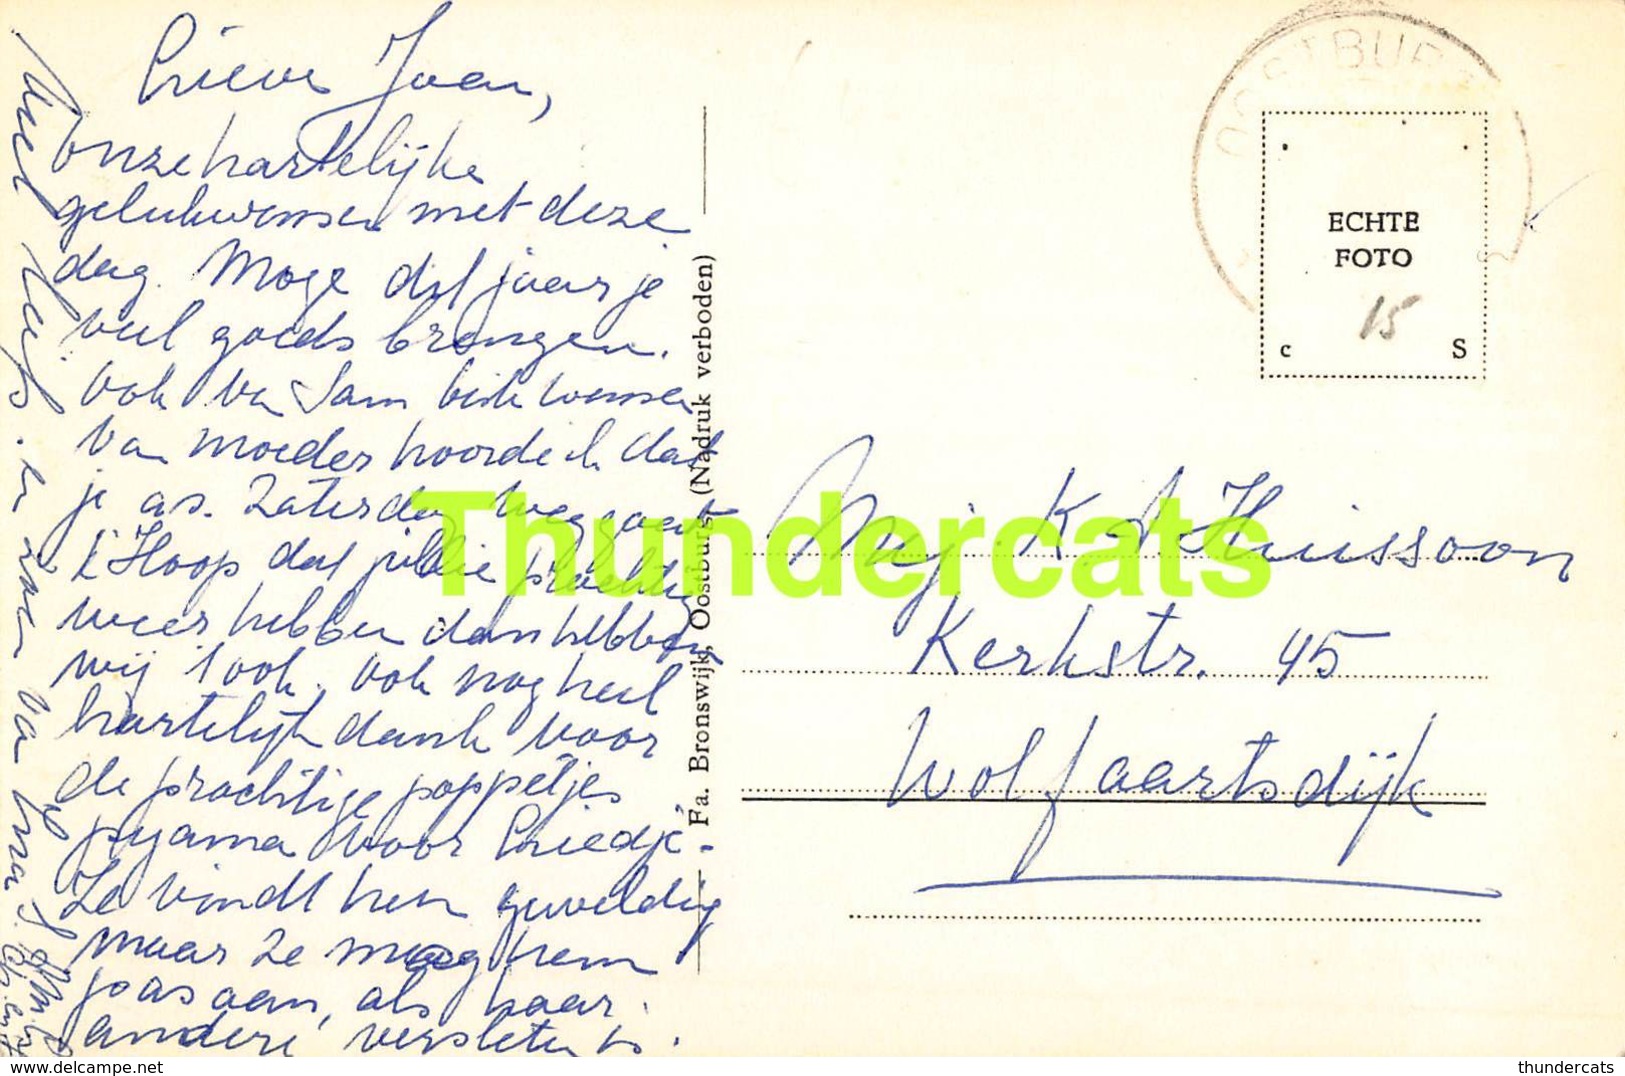 Lieve Joan,
onze hartelijke
gelukwensen met deze
dag. Moge dit jaar je
veel goeds brengen.
ook van Sam beste wensen
Van moeder hoorde ik dat
je as. Zaterdag weg gaat
k'Hoop dat jullie prachtig
weer hebben dan hebben
wij 't ook. ook nog heel
hartelijk dank voor
de prachtige poppetjes
pyama voor Liedje.
Ze vindt hem geweldig
maar ze mag hem
pas aan, als haar
andere versleten is.
OOSTBURG
ECHTE
FOTO
15
c S
Fa. Bronswijk, Oostburg. (Nadruk verboden)
Mej K A Huissoon
Kerkstr. 45
Wolfaartsdijk
Thundercats
delcampe.net
thundercats